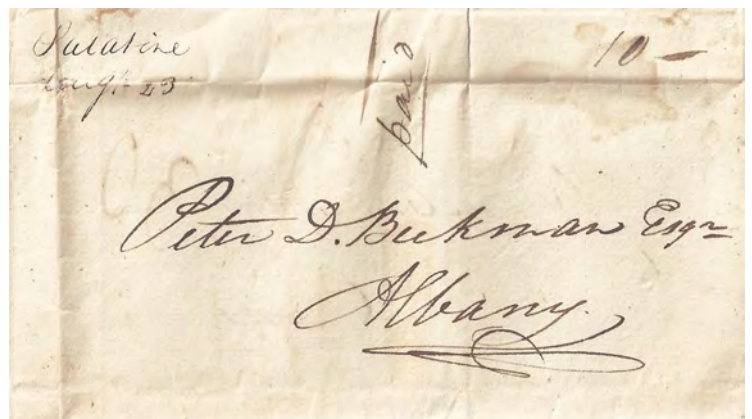 Palatine
Augt 23
paid
10 –
Peter D. Beekman Esqr
Albany.